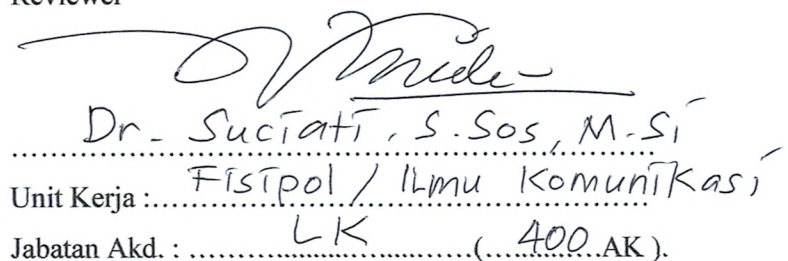 Reviewer
Dr. Suciati, S.Sos, M.Si
Unit Kerja : Fisipol / Ilmu Komunikasi
Jabatan Akd. : LK ( 400 AK ).